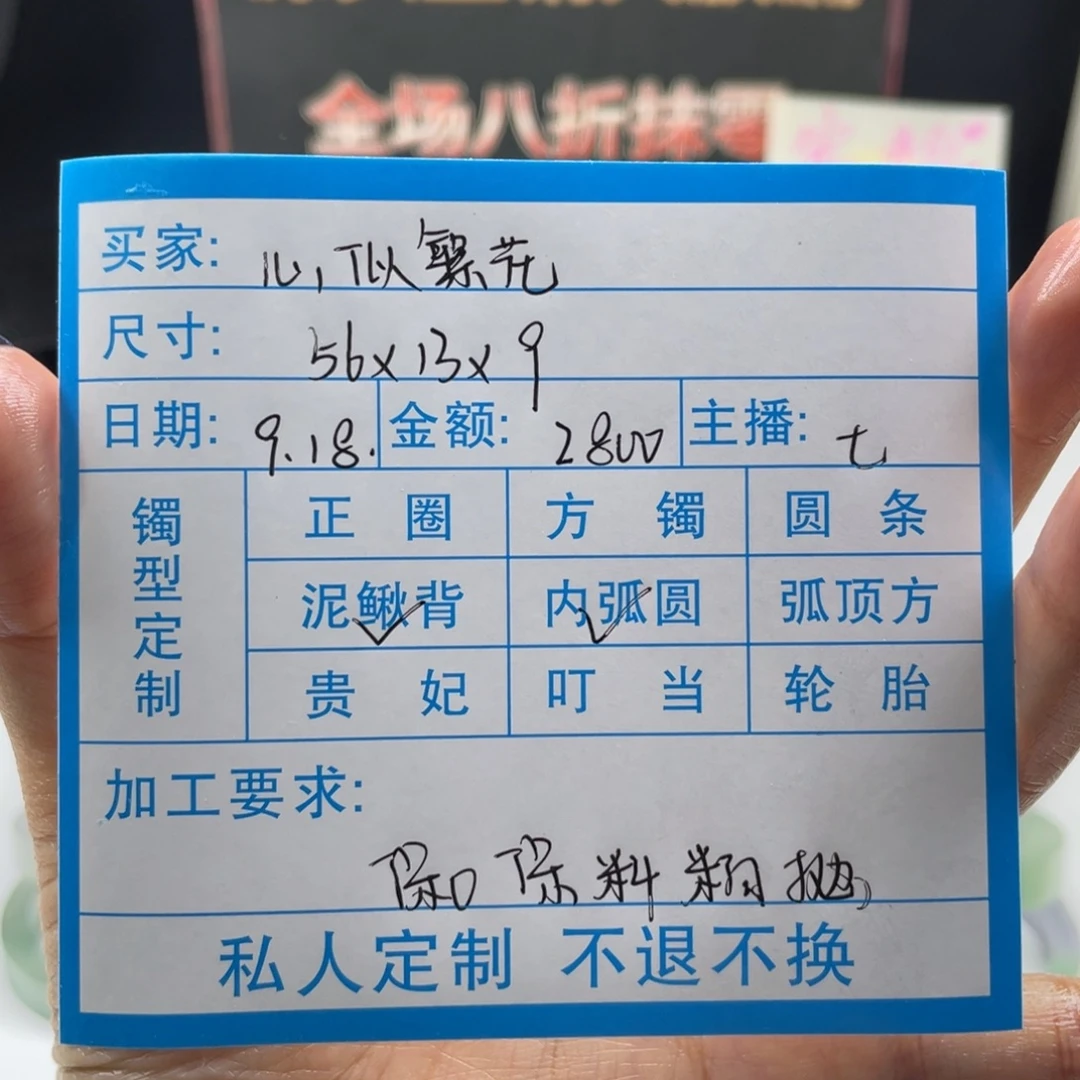 全场八折抹零
买家: 心似繁花
尺寸: 56x13x9
日期: 9.18. 金额: 2800 主播: 七
镯型定制
正圈 方镯 圆条
泥鳅背 内弧圆 弧顶方
贵妃 叮当 轮胎
加工要求:
保料 抛
私人定制 不退不换